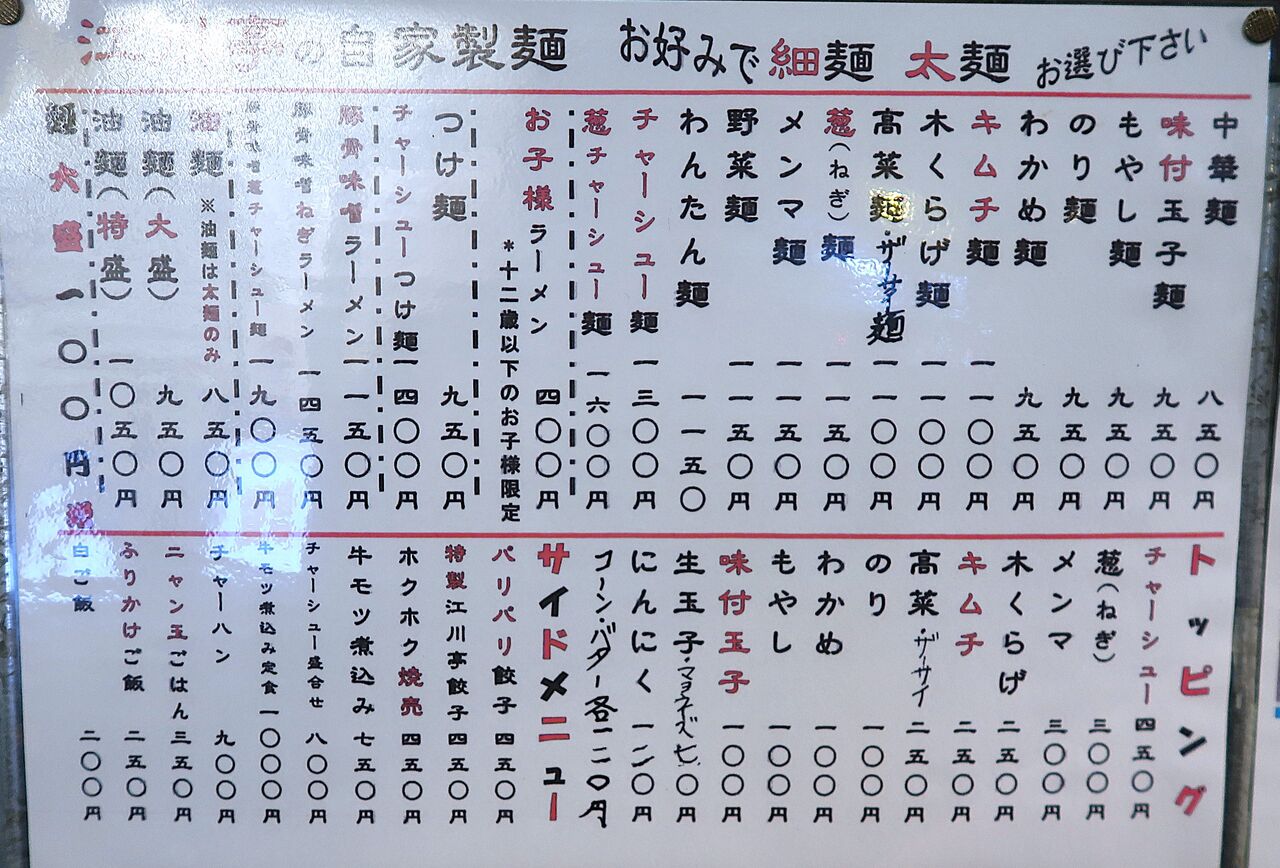 江川亭の自家製麺 お好みで細麺 太麺 お選び下さい
中華麺 八五〇円
味付玉子麺 九五〇円
もやし麺 九五〇円
のり麺 九五〇円
わかめ麺 九五〇円
キムチ麺 一一〇〇円
木くらげ麺 一一〇〇円
高菜麺・ザーサイ麺 一一〇〇円
葱(ねぎ)麺 一一五〇円
メンマ麺 一一五〇円
野菜麺 一一五〇円
わんたん麺 一一五〇
チャーシュー麺 一三〇〇円
葱チャーシュー麺 一六〇〇円
お子様ラーメン 四〇〇円
*十二歳以下のお子様限定
つけ麺 九五〇円
チャーシューつけ麺 一四〇〇円
豚骨味噌ラーメン 一一五〇円
豚骨味噌ねぎラーメン 一四五〇円
豚骨味噌葱チャーシュー麺 一九〇〇円
油麺 ※油麺は太麺のみ 八五〇円
油麺(大盛) 九五〇円
油麺(特盛) 一〇五〇円
麺大盛一〇〇円増
トッピング
チャーシュー 四五〇円
葱(ねぎ) 三〇〇円
メンマ 三〇〇円
木くらげ 二五〇円
キムチ 二五〇円
高菜 ザーサイ 二五〇円
のり 一〇〇円
わかめ 一〇〇円
もやし 一〇〇円
味付玉子 一〇〇円
生玉子・マヨネーズ
にんにく
コーン・バター各一二〇円
サイドメニュー
パリパリ餃子 四五〇円
特製江川亭餃子 四五〇円
ホクホク焼売 四五〇円
牛モツ煮込み 七五〇円
チャーシュー盛合せ 八〇〇円
牛モツ煮込み定食 一〇〇〇円
チャーハン 九〇〇円
ニャン玉ごはん 三五〇円
ふりかけご飯 二五〇円
白ご飯 二〇〇円